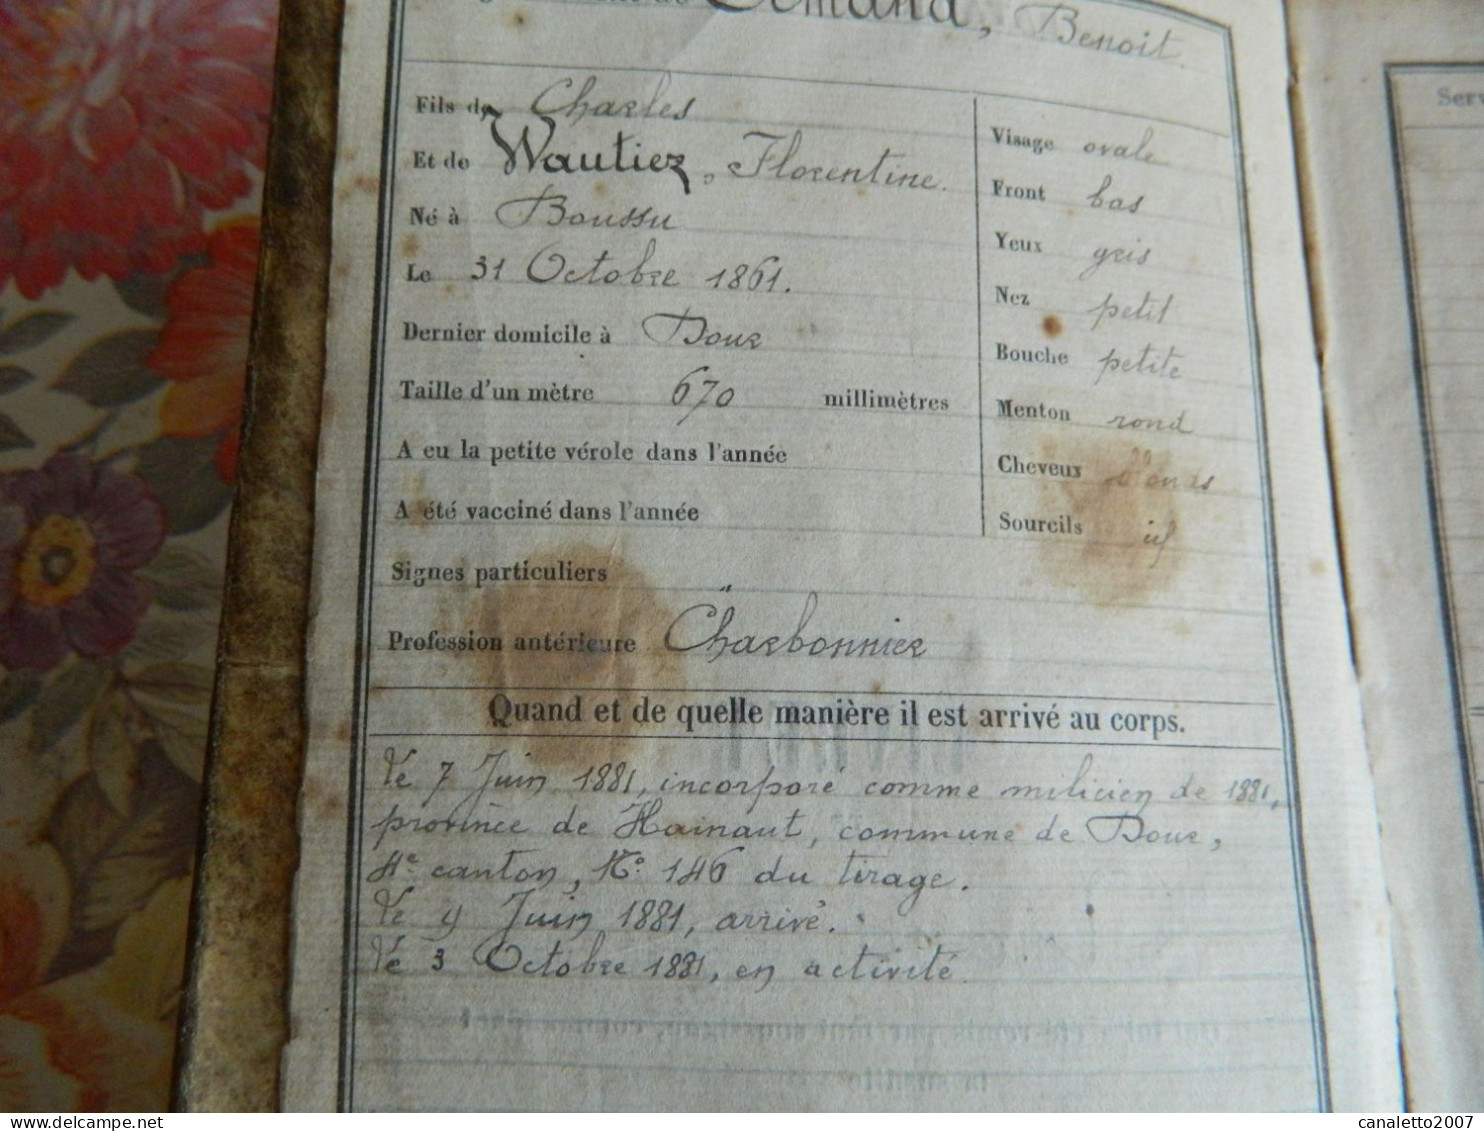 Benoit.
Fils de Charles
Et de Wautiez, Florentine.
Né à Boussu
Le 31 Octobre 1861.
Dernier domicile à Dour
Taille d'un mètre 670 millimètres
A eu la petite vérole dans l'année
A été vacciné dans l'année
Signes particuliers "
Profession antérieure Charbonnier
Visage ovale
Front bas
Yeux gris
Nez petit
Bouche petite
Menton rond
Cheveux blonds
Sourcils id
Quand et de quelle manière il est arrivé au corps.
Le 7 Juin 1881, incorporé comme milicien de 1881,
province de Hainaut, commune de Dour,
4e canton, No 146 du tirage.
Le 9 Juin 1881, arrivé.
Le 3 Octobre 1881, en activité
Serv
canaletto2007
delcampe.net